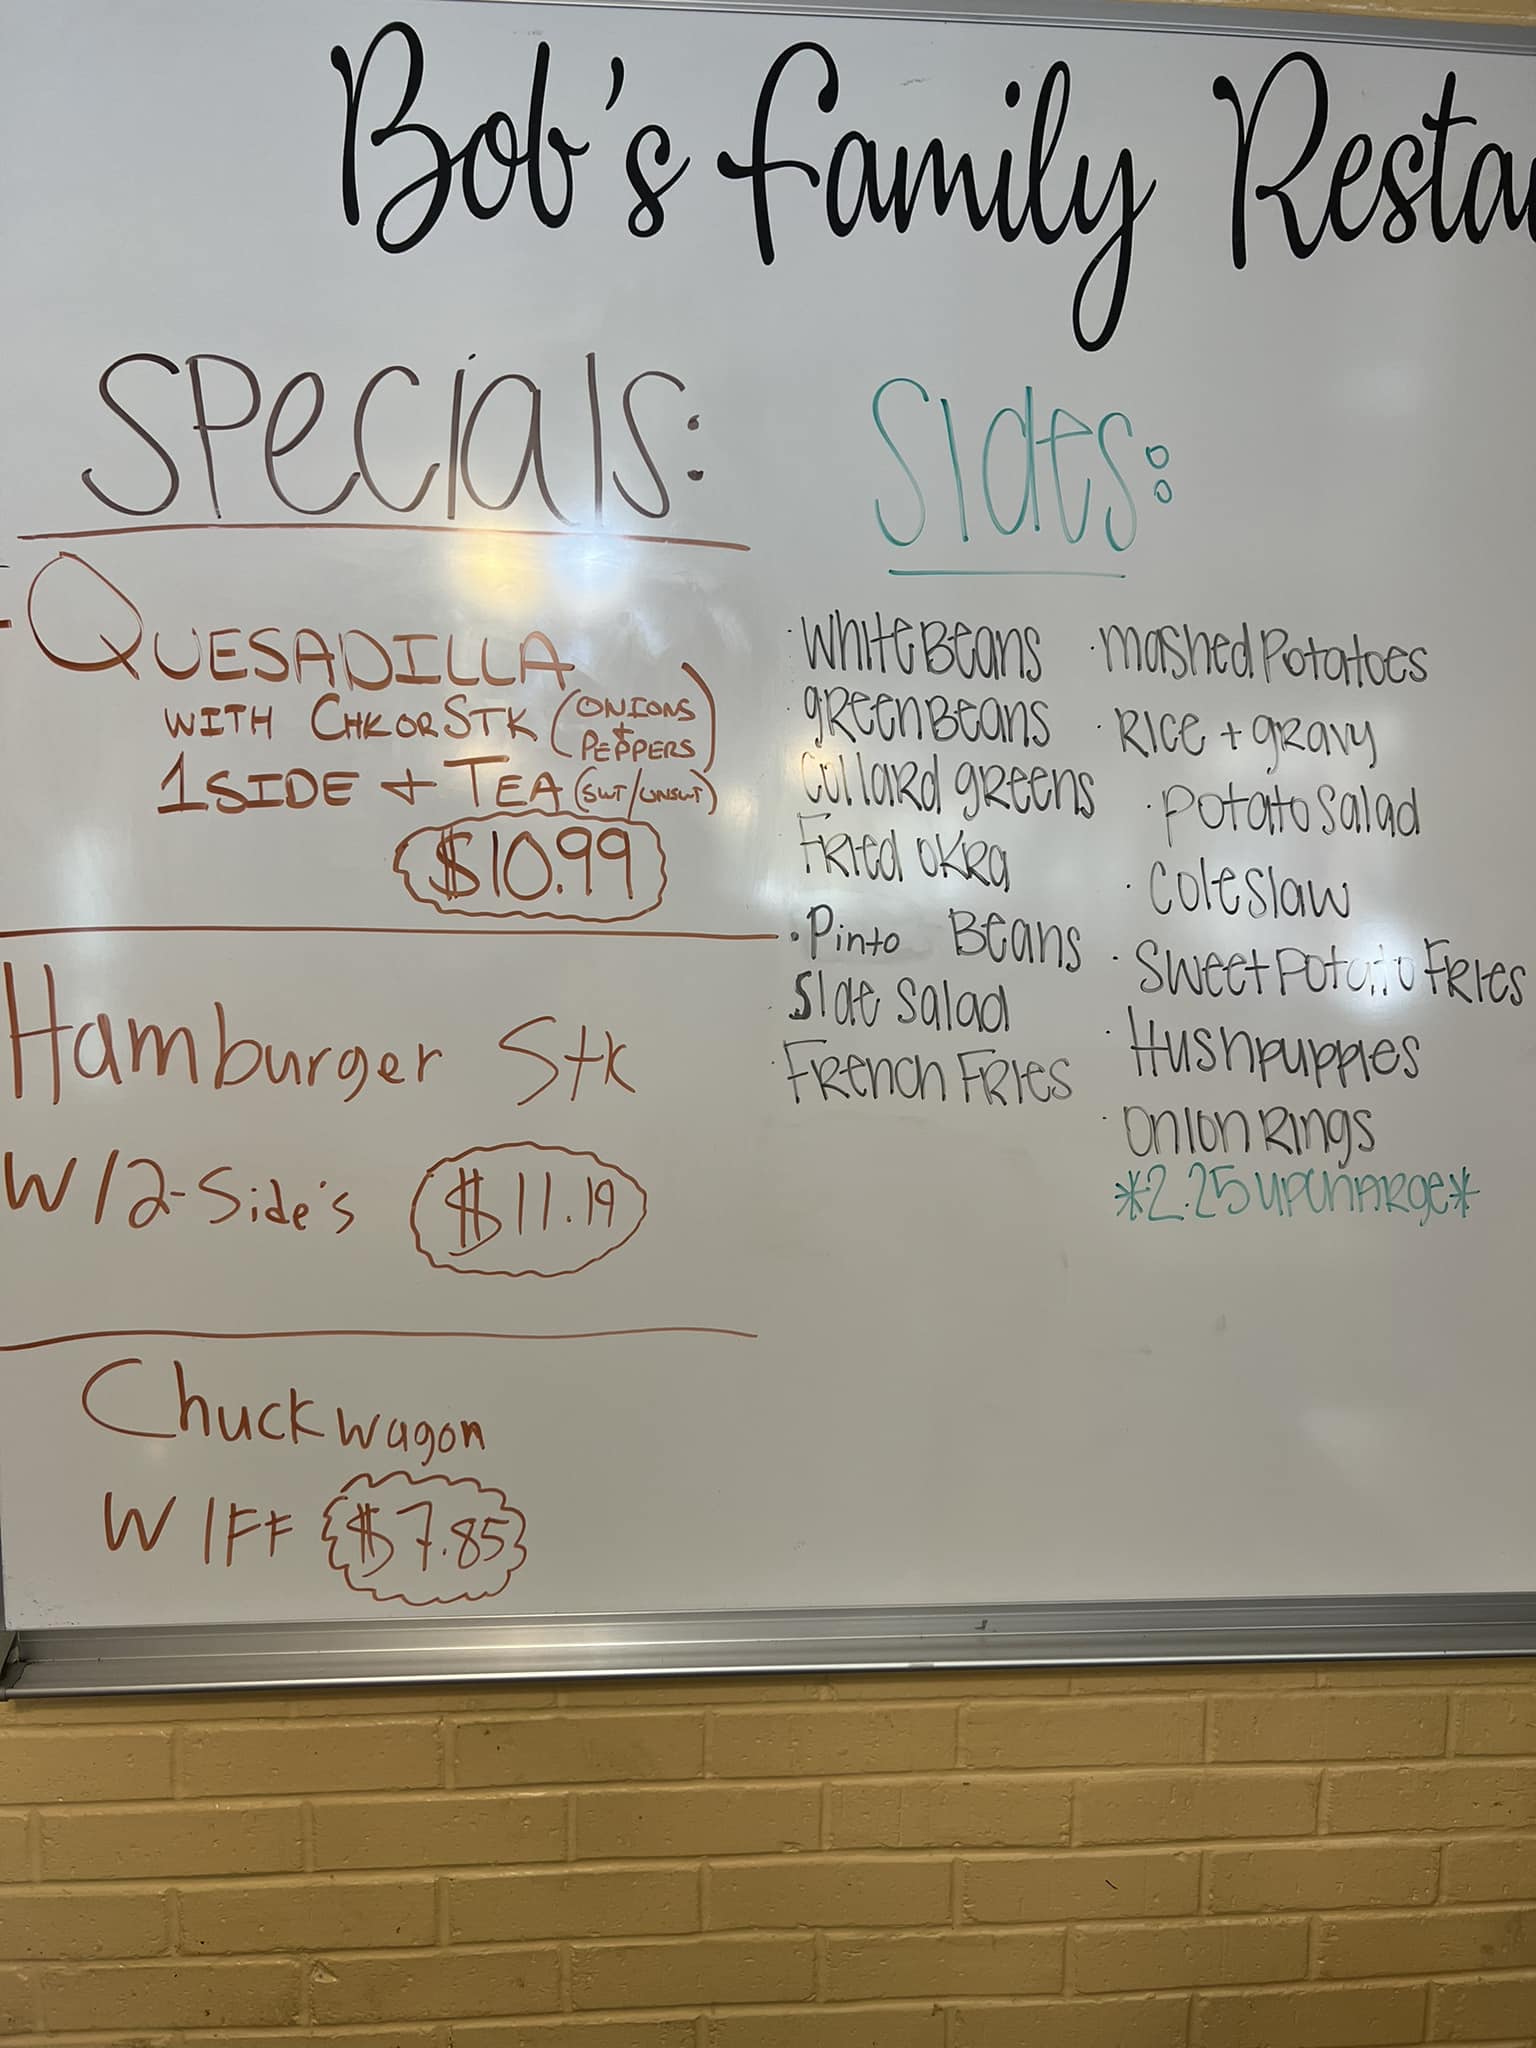 Bob's Family Resta
Specials:
QUESADILLA
WITH CHK OR STK (ONIONS + PEPPERS)
1 SIDE + TEA (SWT/UNSWT)
$10.99
Hamburger Stk
W/2-Side's $11.19
Chuckwagon
W/FF $7.85
Sides:
White Beans
green Beans
Collard greens
Fried okra
Pinto Beans
Side Salad
French Fries
Mashed Potatoes
Rice + gravy
Potato Salad
Coleslaw
Sweet Potato Fries
Hushpuppies
Onion Rings
*2.25 upcharge*